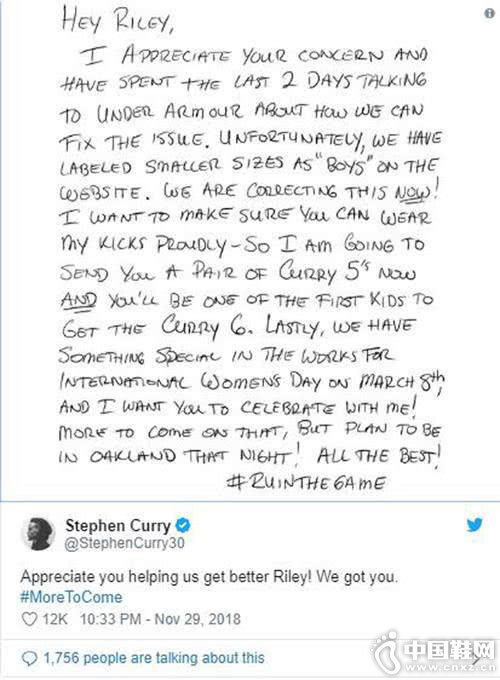 HEY RILEY,
I APPRECIATE YOUR CONCERN AND
HAVE SPENT THE LAST 2 DAYS TALKING
TO UNDER ARMOUR ABOUT HOW WE CAN
FIX THE ISSUE. UNFORTUNATELY, WE HAVE
LABELED SMALLER SIZES AS "BOYS" ON THE
WEBSITE. WE ARE CORRECTING THIS NOW!
I WANT TO MAKE SURE YOU CAN WEAR
MY KICKS PROUDLY - SO I AM GOING TO
SEND YOU A PAIR OF CURRY 5's NOW
AND YOU'LL BE ONE OF THE FIRST KIDS TO
GET THE CURRY 6. LASTLY, WE HAVE
SOMETHING SPECIAL IN THE WORKS FOR
INTERNATIONAL WOMENS DAY ON MARCH 8th,
AND I WANT YOU TO CELEBRATE WITH ME!
MORE TO COME ON THAT, BUT PLAN TO BE
IN OAKLAND THAT NIGHT! ALL THE BEST!
#RUINTHEGAME
Stephen Curry
@StephenCurry30
Appreciate you helping us get better Riley! We got you.
#MoreToCome
12K 10:33 PM - Nov 29, 2018
1,756 people are talking about this
中国鞋网
www.cnxz.cn